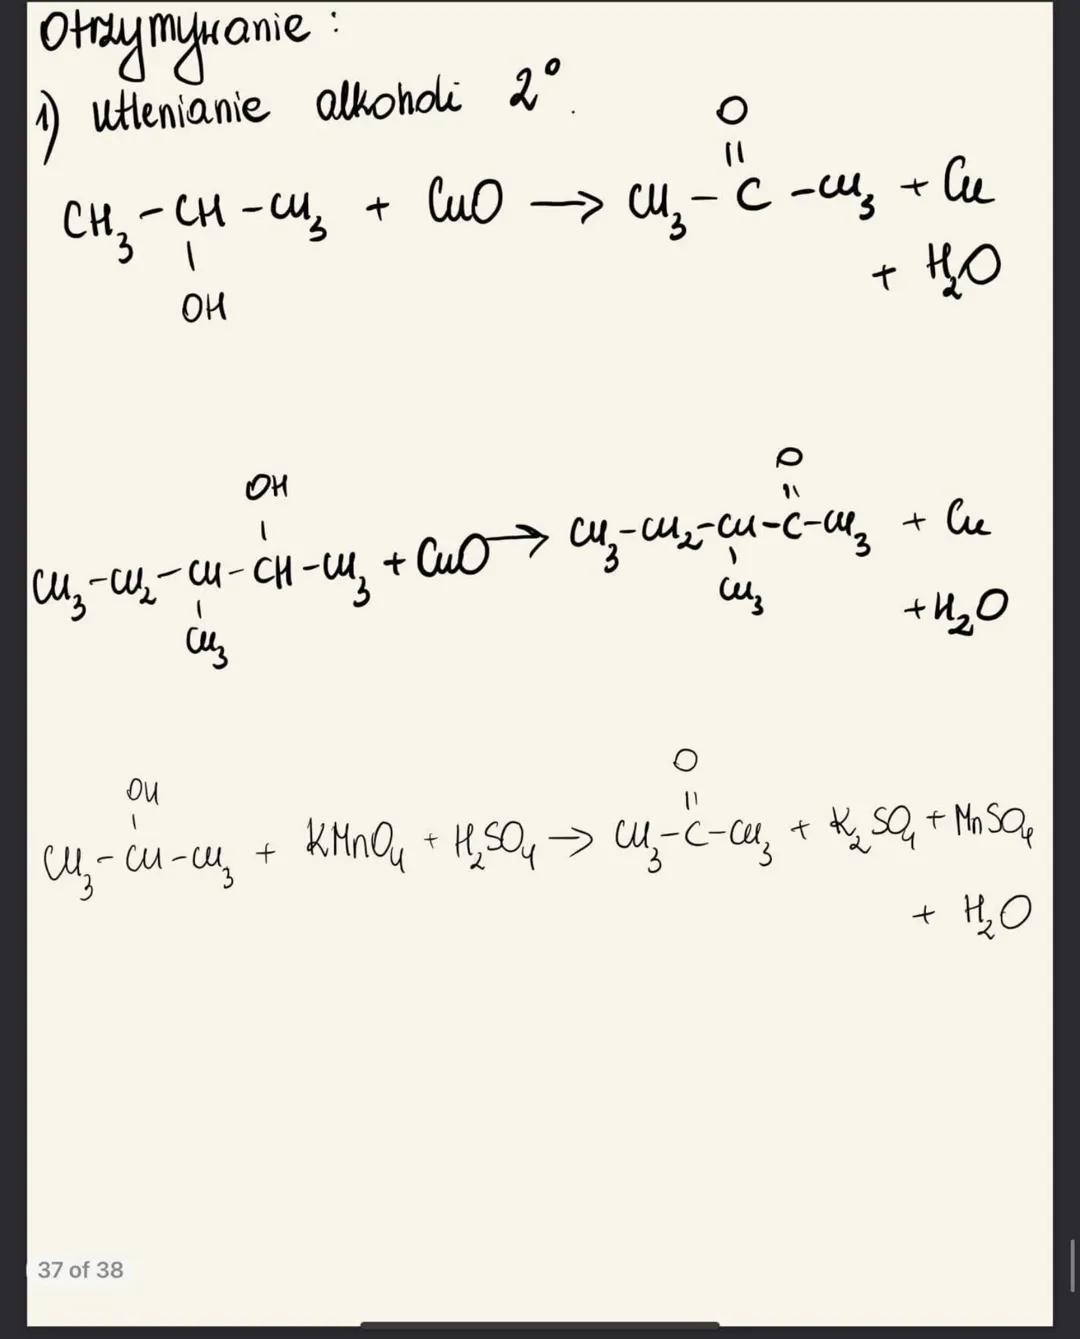 Otrzymywanie :
1) utlenianie alkoholi 2°.
O
||
CH₃ - CH - CH₃ + CuO → CH₃ - C - CH₃ + Cu
|
OH
+ H₂O
OH
|
O
||
CH₃ - CH₂ - CH - CH - CH₃ + CuO → CH₃ - CH₂ - CH - C - CH₃ + Cu
|
CH₃
|
CH₃
+ H₂O
OH
|
O
||
CH₃ - CH - CH₃ + KMnO₄ + H₂SO₄ → CH₃ - C - CH₃ + K₂SO₄ + MnSO₄
+ H₂O
37 of 38